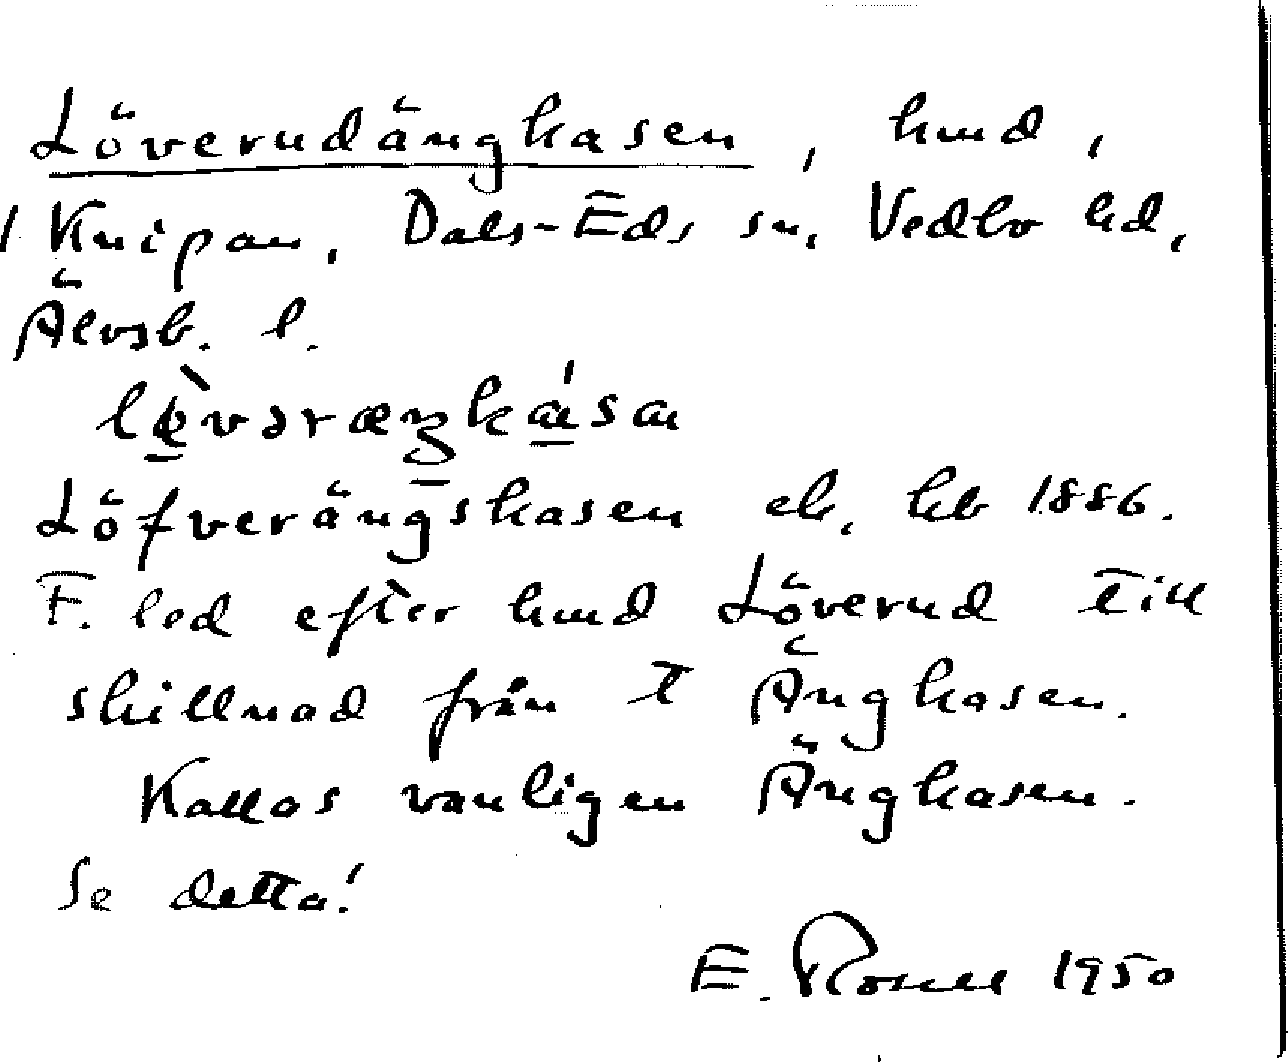 Löverudänghasen, hmd,
1 Knipan, Dals-Eds sn, Vedbo hd,
Älvsb. l.
Löfverängshasen ek. kb 1886.
F. led efter hmd Löverud till
skillnad från 1 Änghasen.
Kallas vanligen Änghasen.
Se detta!
E. Rosell 1950